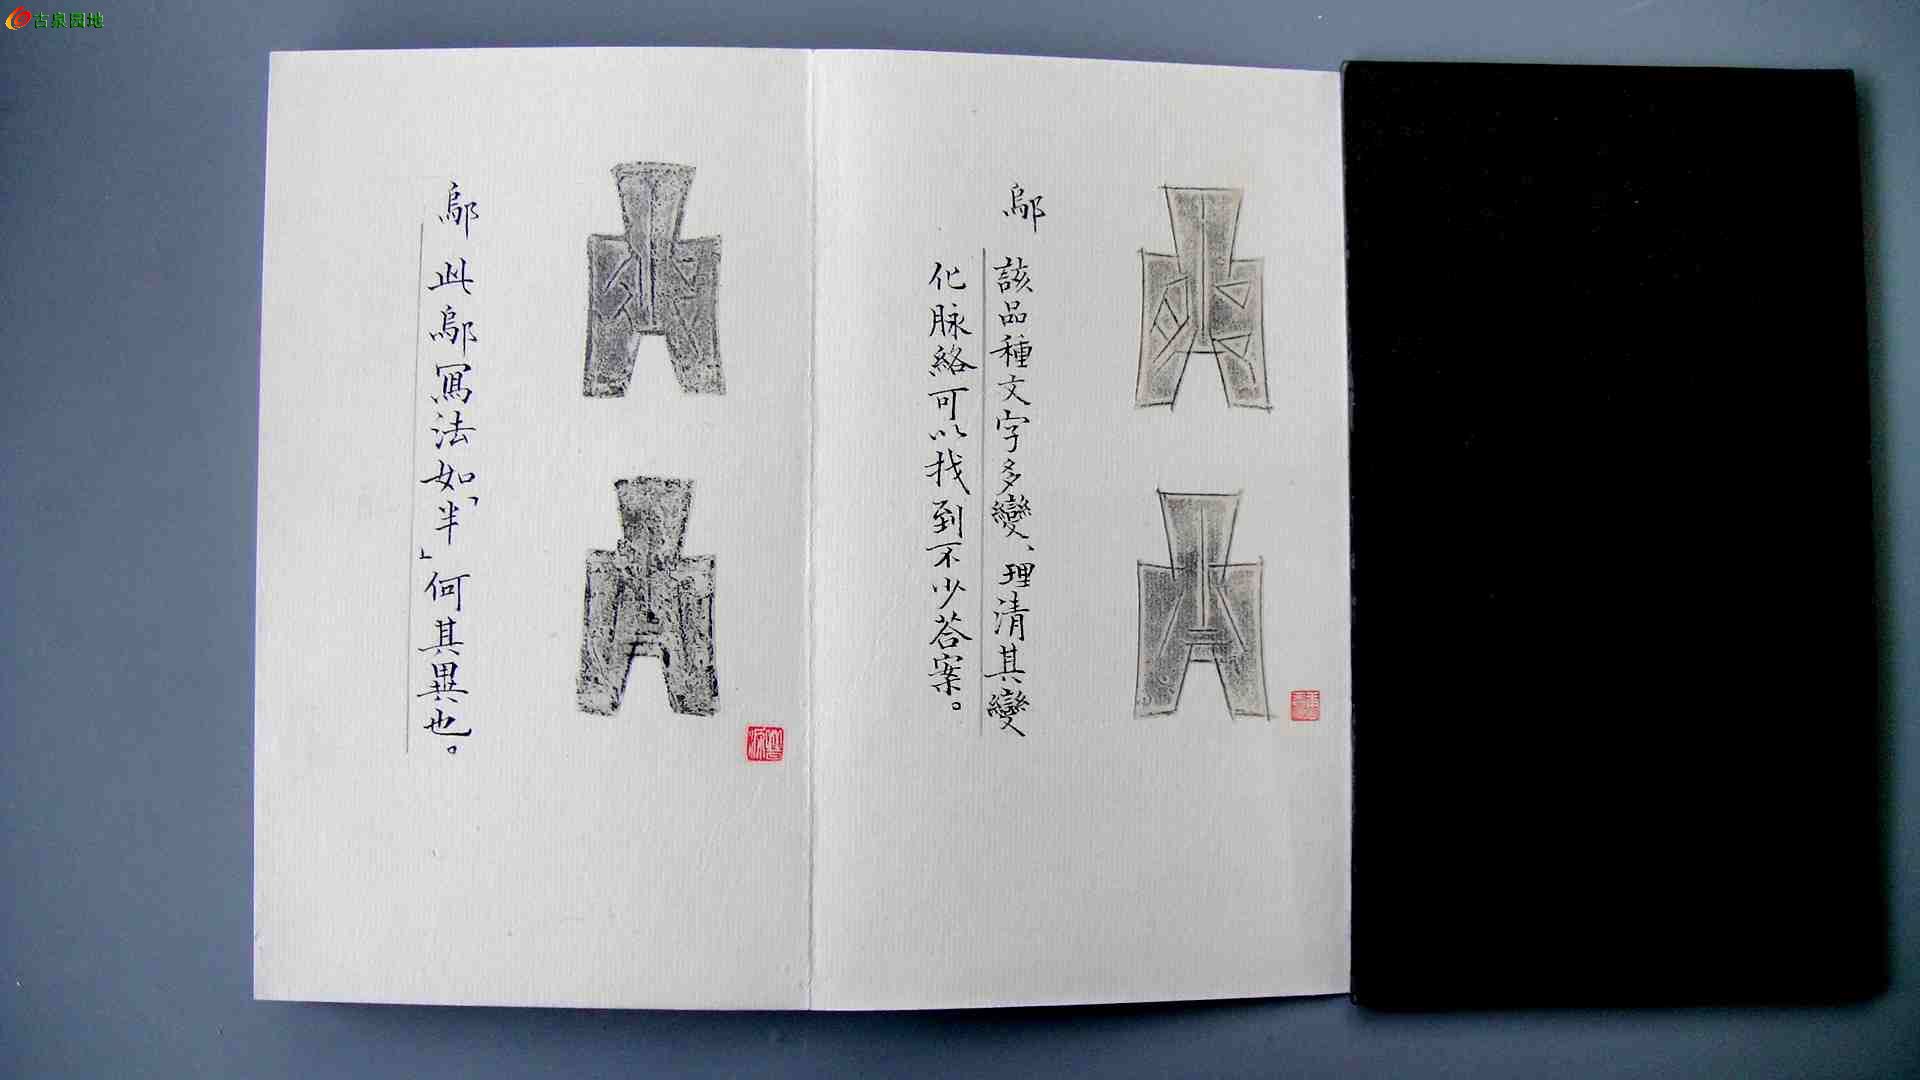 古泉园地
鄔
該品種文字多變、理清其變
化脉絡可以找到不少荅案。
鄔 此鄔寫法如「半」何其異也。